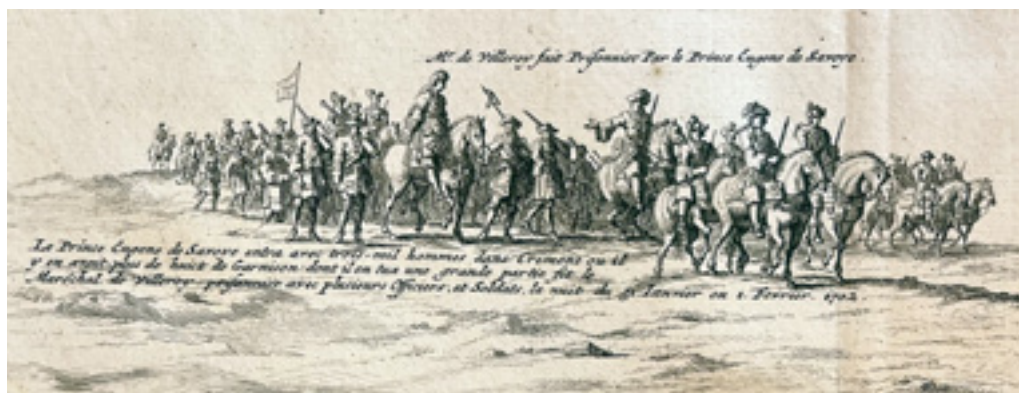 Mr. de Villeroy fait Prisonnier Par le Prince Eugene de Savoye.
Le Prince Eugene de Savoye entra avec trois mil hommes dans Cremone ou il
y en avoit plus de huict de Garnison dont il en tua une grande partie fit le
Maréchal de Villeroy prisonnier avec plusieurs Officiers, et Soldats, la nuit du Janvier en 1. Fevrier. 1702.